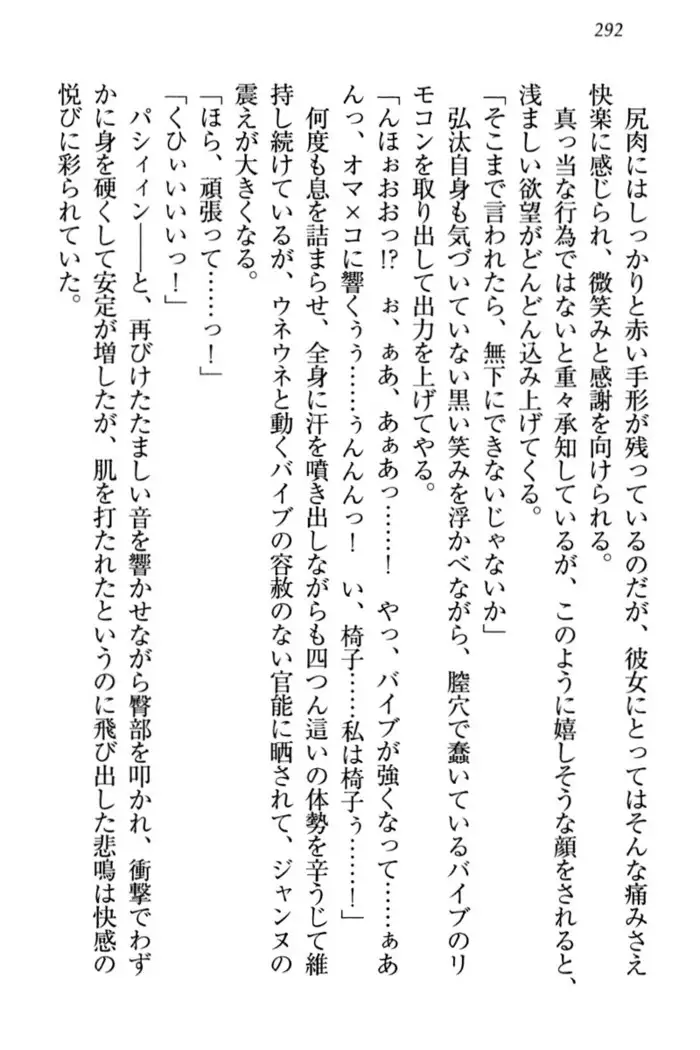 292
尻肉にはしっかりと赤い手形が残っているのだが、彼女にとってはそんな痛みさえ
快楽に感じられ、微笑みと感謝を向けられる。
真っ当な行為ではないと重々承知しているが、このように嬉しそうな顔をされると、
浅ましい欲望がどんどん込み上げてくる。
「そこまで言われたら、無下にできないじゃないか」
弘汰自身も気づいていない黒い笑みを浮かべながら、膣穴で蠢いているバイブのリ
モコンを取り出して出力を上げてやる。
「んほぉおおっ!?　ぉ、ぁあ、あぁあっ……！　やっ、バイブが強くなって……ぁあ
んっ、オマ×コに響くぅぅ……ぅんんんっ！　い、椅子……私は椅子ぅ……！」
何度も息を詰まらせ、全身に汗を噴き出しながらも四つん這いの体勢を辛うじて維
持し続けているが、ウネウネと動くバイブの容赦のない官能に晒されて、ジャンヌの
震えが大きくなる。
「ほら、頑張って……っ！」
「くひぃいいいっ！」
パシィィン――と、再びけたたましい音を響かせながら臀部を叩かれ、衝撃でわず
かに身を硬くして安定が増したが、肌を打たれたというのに飛び出した悲鳴は快感の
悦びに彩られていた。